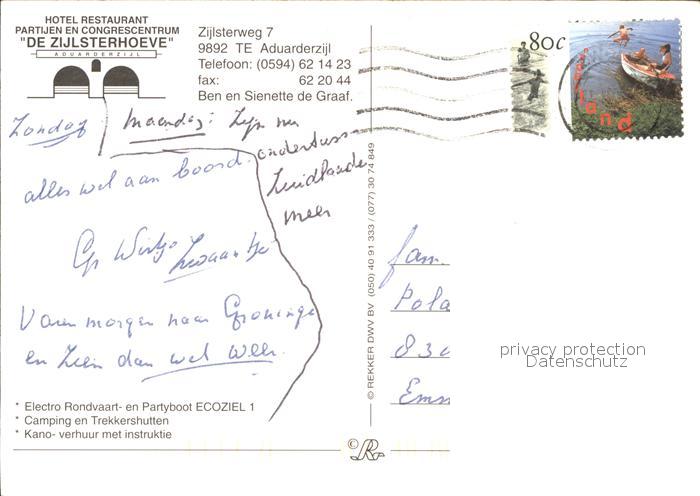 HOTEL RESTAURANT
PARTIJEN EN CONGRESCENTRUM
"DE ZIJLSTERHOEVE"
ADUARDERZIJL
Zijlsterweg 7
9892 TE Aduarderzijl
Telefoon: (0594) 62 14 23
fax: 62 20 44
Ben en Sienette de Graaf.
80c
nederland
Zondag
alles wel aan boord.
Gr Wietze Zwaantje
Varen morgen naar Groningen
en zien dan wel weer.
maandag: Zijn nu
ondertuss
Zuidlaarde
meer
* Electro Rondvaart- en Partyboot ECOZIEL 1
* Camping en Trekkershutten
* Kano- verhuur met instruktie
© REKKER DWV BV (050) 40 91 333 / (077) 30 74 849
©R
fam.
Pola
830
Emm
privacy protection
Datenschutz